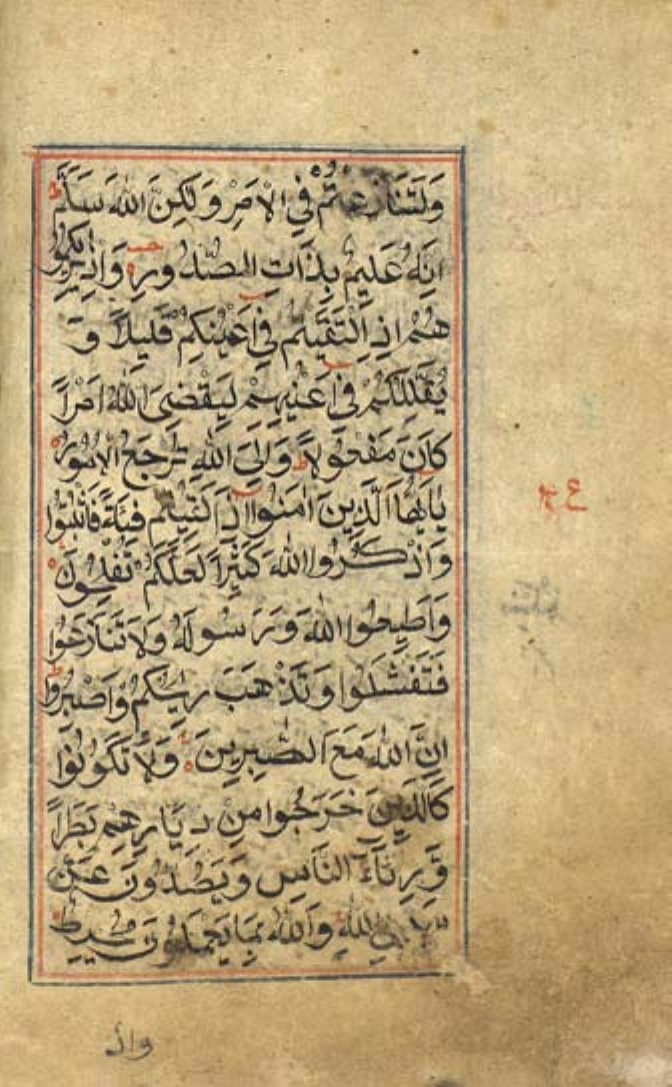 وَلَتَنَازَعْتُمْ فِي الْاَمْرِ وَلٰكِنَّ اللهَ سَلَّمَ ط
اِنَّهُ عَلِيمٌ بِذَاتِ الصُّدُورِ وَاِذْ يُرِيكُمُو
هُمْ اِذِ الْتَقَيْتُمْ فِي اَعْيُنِكُمْ قَلِيلاً وَ
يُقَلِّلُكُمْ فِي اَعْيُنِهِمْ لِيَقْضِيَ اللهُ اَمْرًا
كَانَ مَفْعُولاً ط وَاِلَى اللهِ تُرْجَعُ الْاُمُورُ
يٰاَيُّهَا الَّذِينَ اٰمَنُوا اِذَا لَقِيتُمْ فِئَةً فَاثْبُتُوا
وَاذْكُرُوا اللهَ كَثِيرًا لَعَلَّكُمْ تُفْلِحُونَ
وَاَطِيعُوا اللهَ وَرَسُولَهُ وَلَا تَنَازَعُوا
فَتَفْشَلُوا وَتَذْهَبَ رِيحُكُمْ وَاصْبِرُوا ط
اِنَّ اللهَ مَعَ الصّٰبِرِينَ وَلَا تَكُونُوا
كَالَّذِينَ خَرَجُوا مِنْ دِيَارِهِمْ بَطَرًا
وَّرِئَآءَ النَّاسِ وَيَصُدُّونَ عَنْ
سَبِيلِ اللهِ وَاللهُ بِمَا يَعْمَلُونَ مُحِيطٌ
واذ